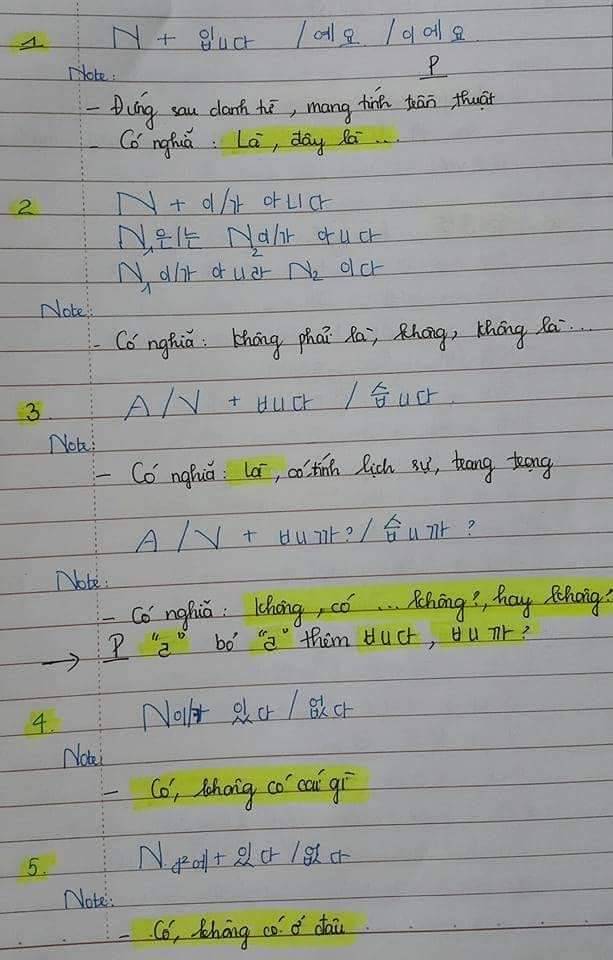 1 N + 입니다 / 예요 / 이에요
Note: P
- Đứng sau danh từ, mang tính trần thuật
- Có nghĩa : Là, đây là ...
2 N + 이/가 아니다
N1은/는 N2이/가 아니다
N1 이/가 아니라 N2 이다
Note:
- Có nghĩa: không phải là, không, không là ...
3 A/V + ㅂ니다 / 습니다
Note:
- Có nghĩa: là, có tính lịch sự, trang trọng
A/V + ㅂ니까? / 습니까?
Note:
- Có nghĩa: không, có ... không?, hay không?
→ P "ㄹ" bỏ "ㄹ" thêm ㅂ니다, ㅂ니까?
4. N이/가 있다 / 없다
Note:
- Có, không có cái gì
5. N에 + 있다 / 없다
Note:
- Có, không có ở đâu